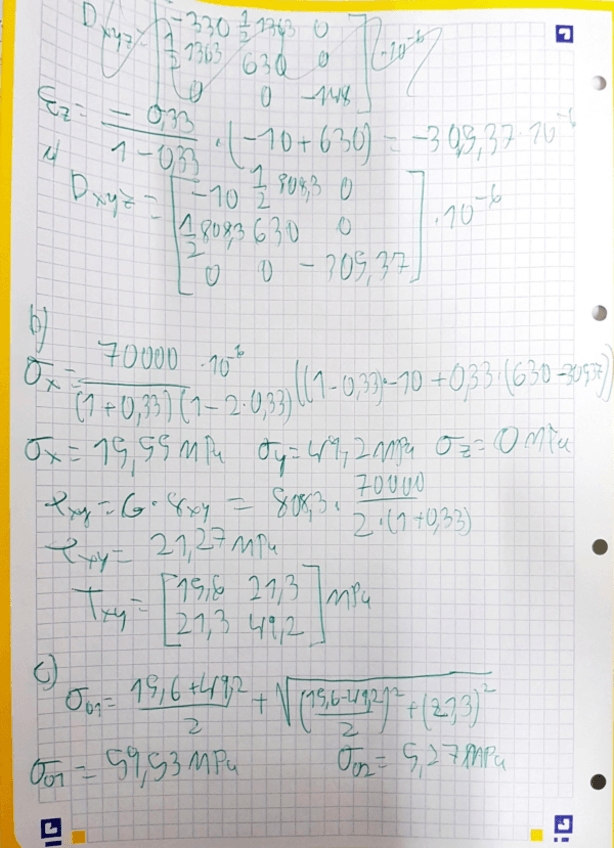 D_xyz = [-330 1/2 1363 0
1/2 1363 630 0
0 0 -148] · 10^-6
ε_z = -0,33/(1-0,33) · (-10+630) = -305,37·10^-6
D_xyz = [-10 1/2 808,3 0
1/2 808,3 630 0
0 0 -305,37] · 10^-6
b)
σ_x = 70000·10^-6/((1+0,33)(1-2·0,33)) ((1-0,33)·-10+0,33·(630-305,37))
σ_x = 15,55 MPa σ_y = 49,2 MPa σ_z = 0 MPa
τ_xy = G·γ_xy = 808,3 · 70000/(2·(1+0,33))
τ_xy = 21,27 MPa
T_xy = [15,6 21,3
21,3 49,2] MPa
c)
σ_01 = (15,6+49,2)/2 + √(((15,6-49,2)/2)^2+(21,3)^2)
σ_01 = 59,53 MPa σ_02 = 5,27 MPa